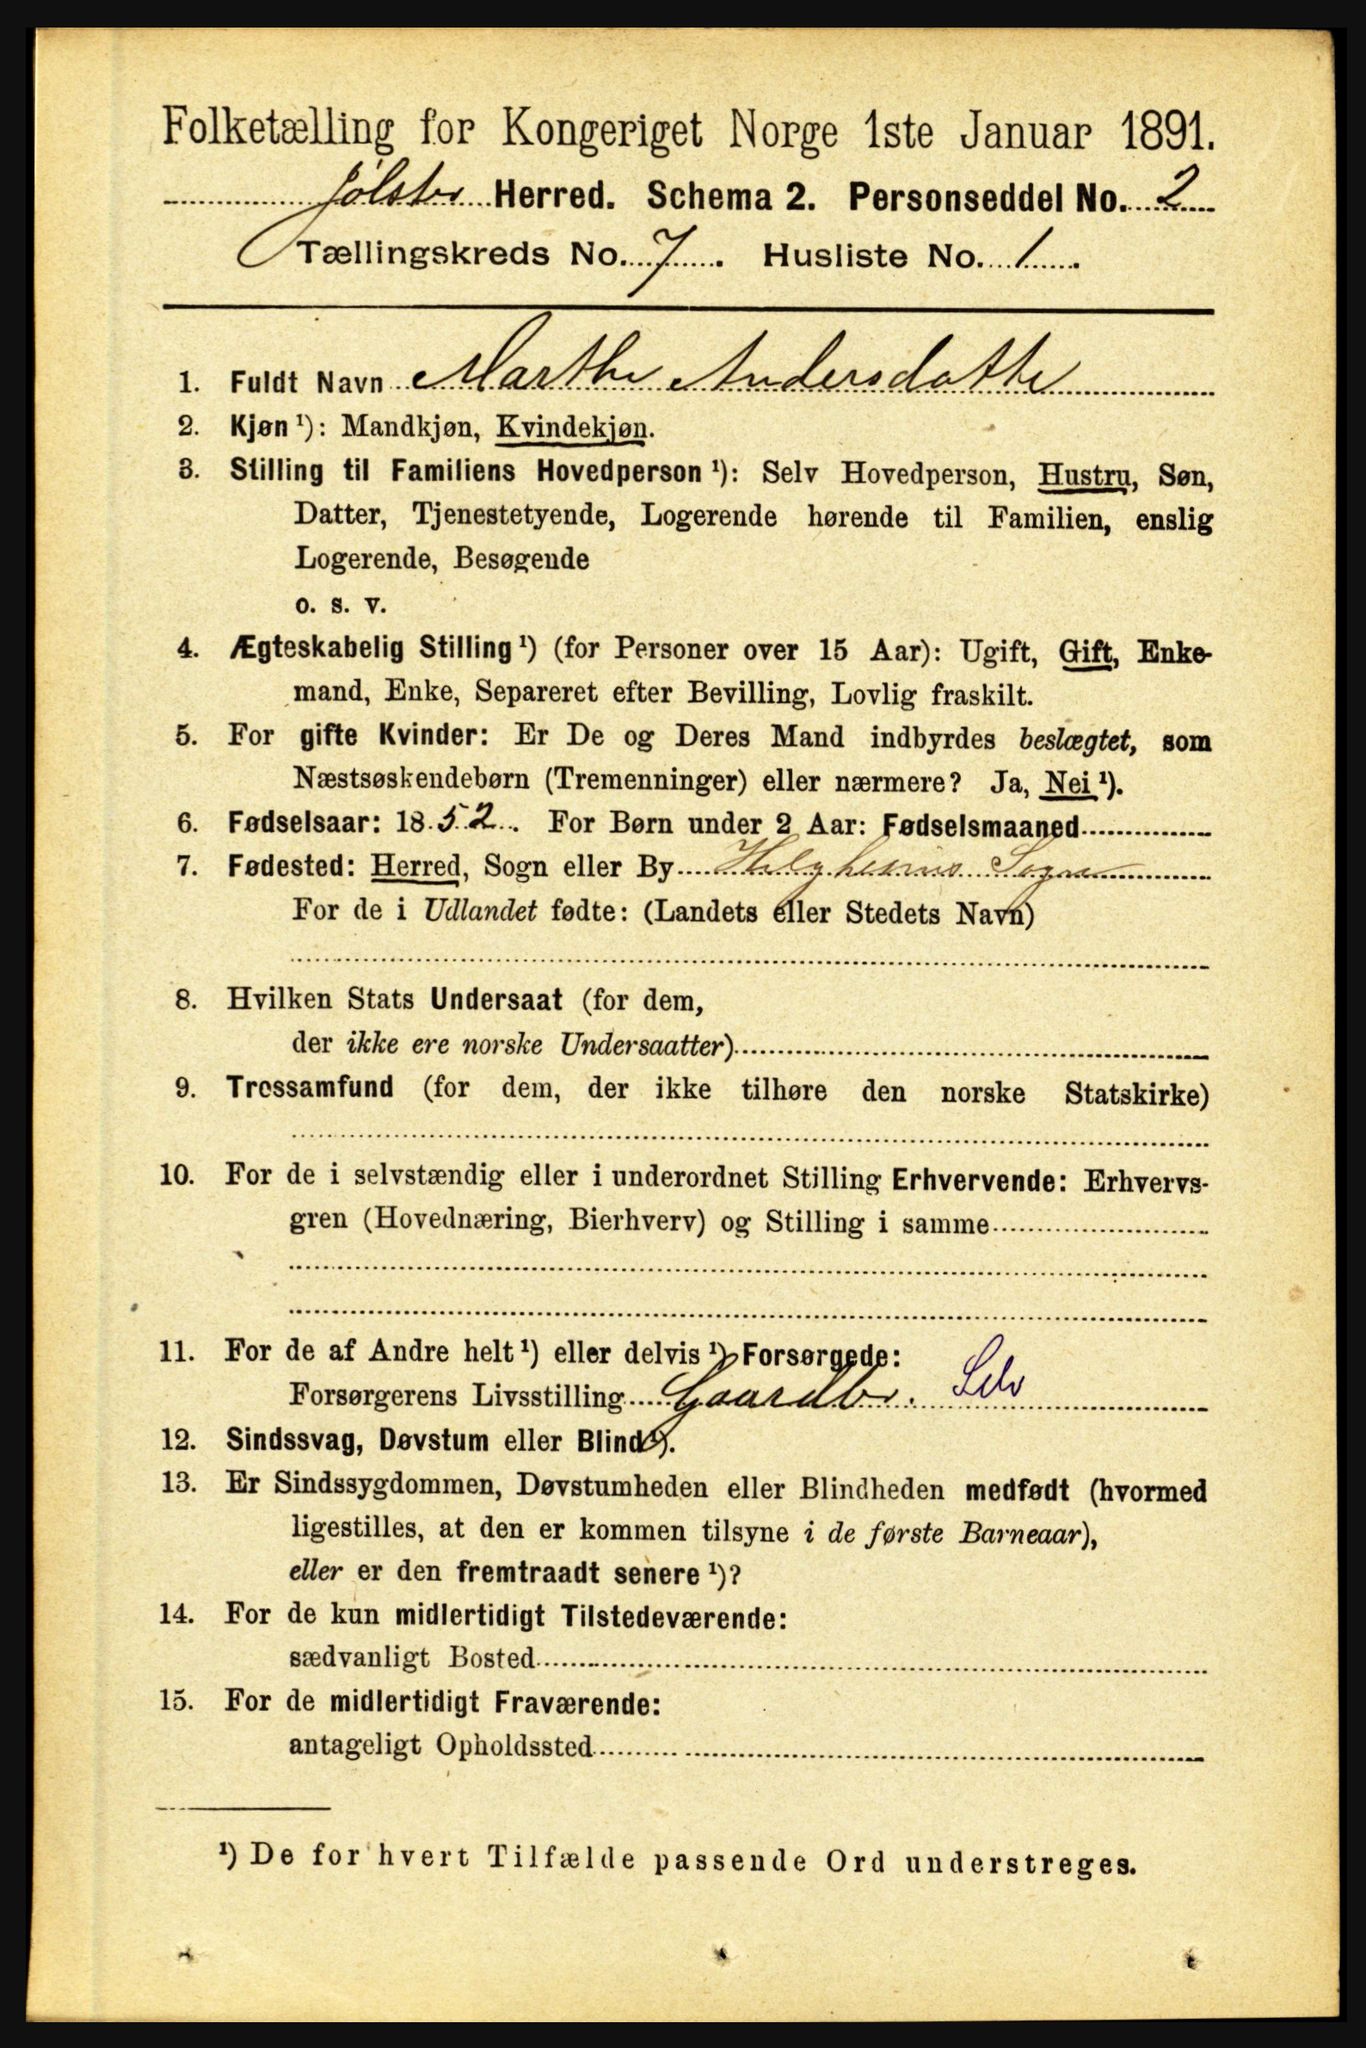 Folketælling for Kongeriget Norge 1ste Januar 1891.
Jølster Herred. Schema 2. Personseddel No. 2
Tællingskreds No. 7. Husliste No. 1.
1. Fuldt Navn Marthe Andersdatte
2. Kjøn ¹): Mandkjøn, Kvindekjøn.
3. Stilling til Familiens Hovedperson ¹): Selv Hovedperson, Hustru, Søn,
Datter, Tjenestetyende, Logerende hørende til Familien, enslig
Logerende, Besøgende
o. s. v.
4. Ægteskabelig Stilling ¹) (for Personer over 15 Aar): Ugift, Gift, Enke-
mand, Enke, Separeret efter Bevilling, Lovlig fraskilt.
5. For gifte Kvinder: Er De og Deres Mand indbyrdes beslægtet, som
Næstsøskendebørn (Tremenninger) eller nærmere? Ja, Nei ¹).
6. Fødselsaar: 1852. For Børn under 2 Aar: Fødselsmaaned
7. Fødested: Herred, Sogn eller By Helgheims Sogn
For de i Udlandet fødte: (Landets eller Stedets Navn)
8. Hvilken Stats Undersaat (for dem,
der ikke ere norske Undersaatter)
9. Trossamfund (for dem, der ikke tilhøre den norske Statskirke)
10. For de i selvstændig eller i underordnet Stilling Erhvervende: Erhvervs-
gren (Hovednæring, Bierhverv) og Stilling i samme
11. For de af Andre helt ¹) eller delvis ¹) Forsørgede:
Forsørgerens Livsstilling Gaardbr. Selv
12. Sindssvag, Døvstum eller Blind ¹).
13. Er Sindssygdommen, Døvstumheden eller Blindheden medfødt (hvormed
ligestilles, at den er kommen tilsyne i de første Barneaar),
eller er den fremtraadt senere ¹)?
14. For de kun midlertidigt Tilstedeværende:
sædvanligt Bosted
15. For de midlertidigt Fraværende:
antageligt Opholdssted
¹) De for hvert Tilfælde passende Ord understreges.